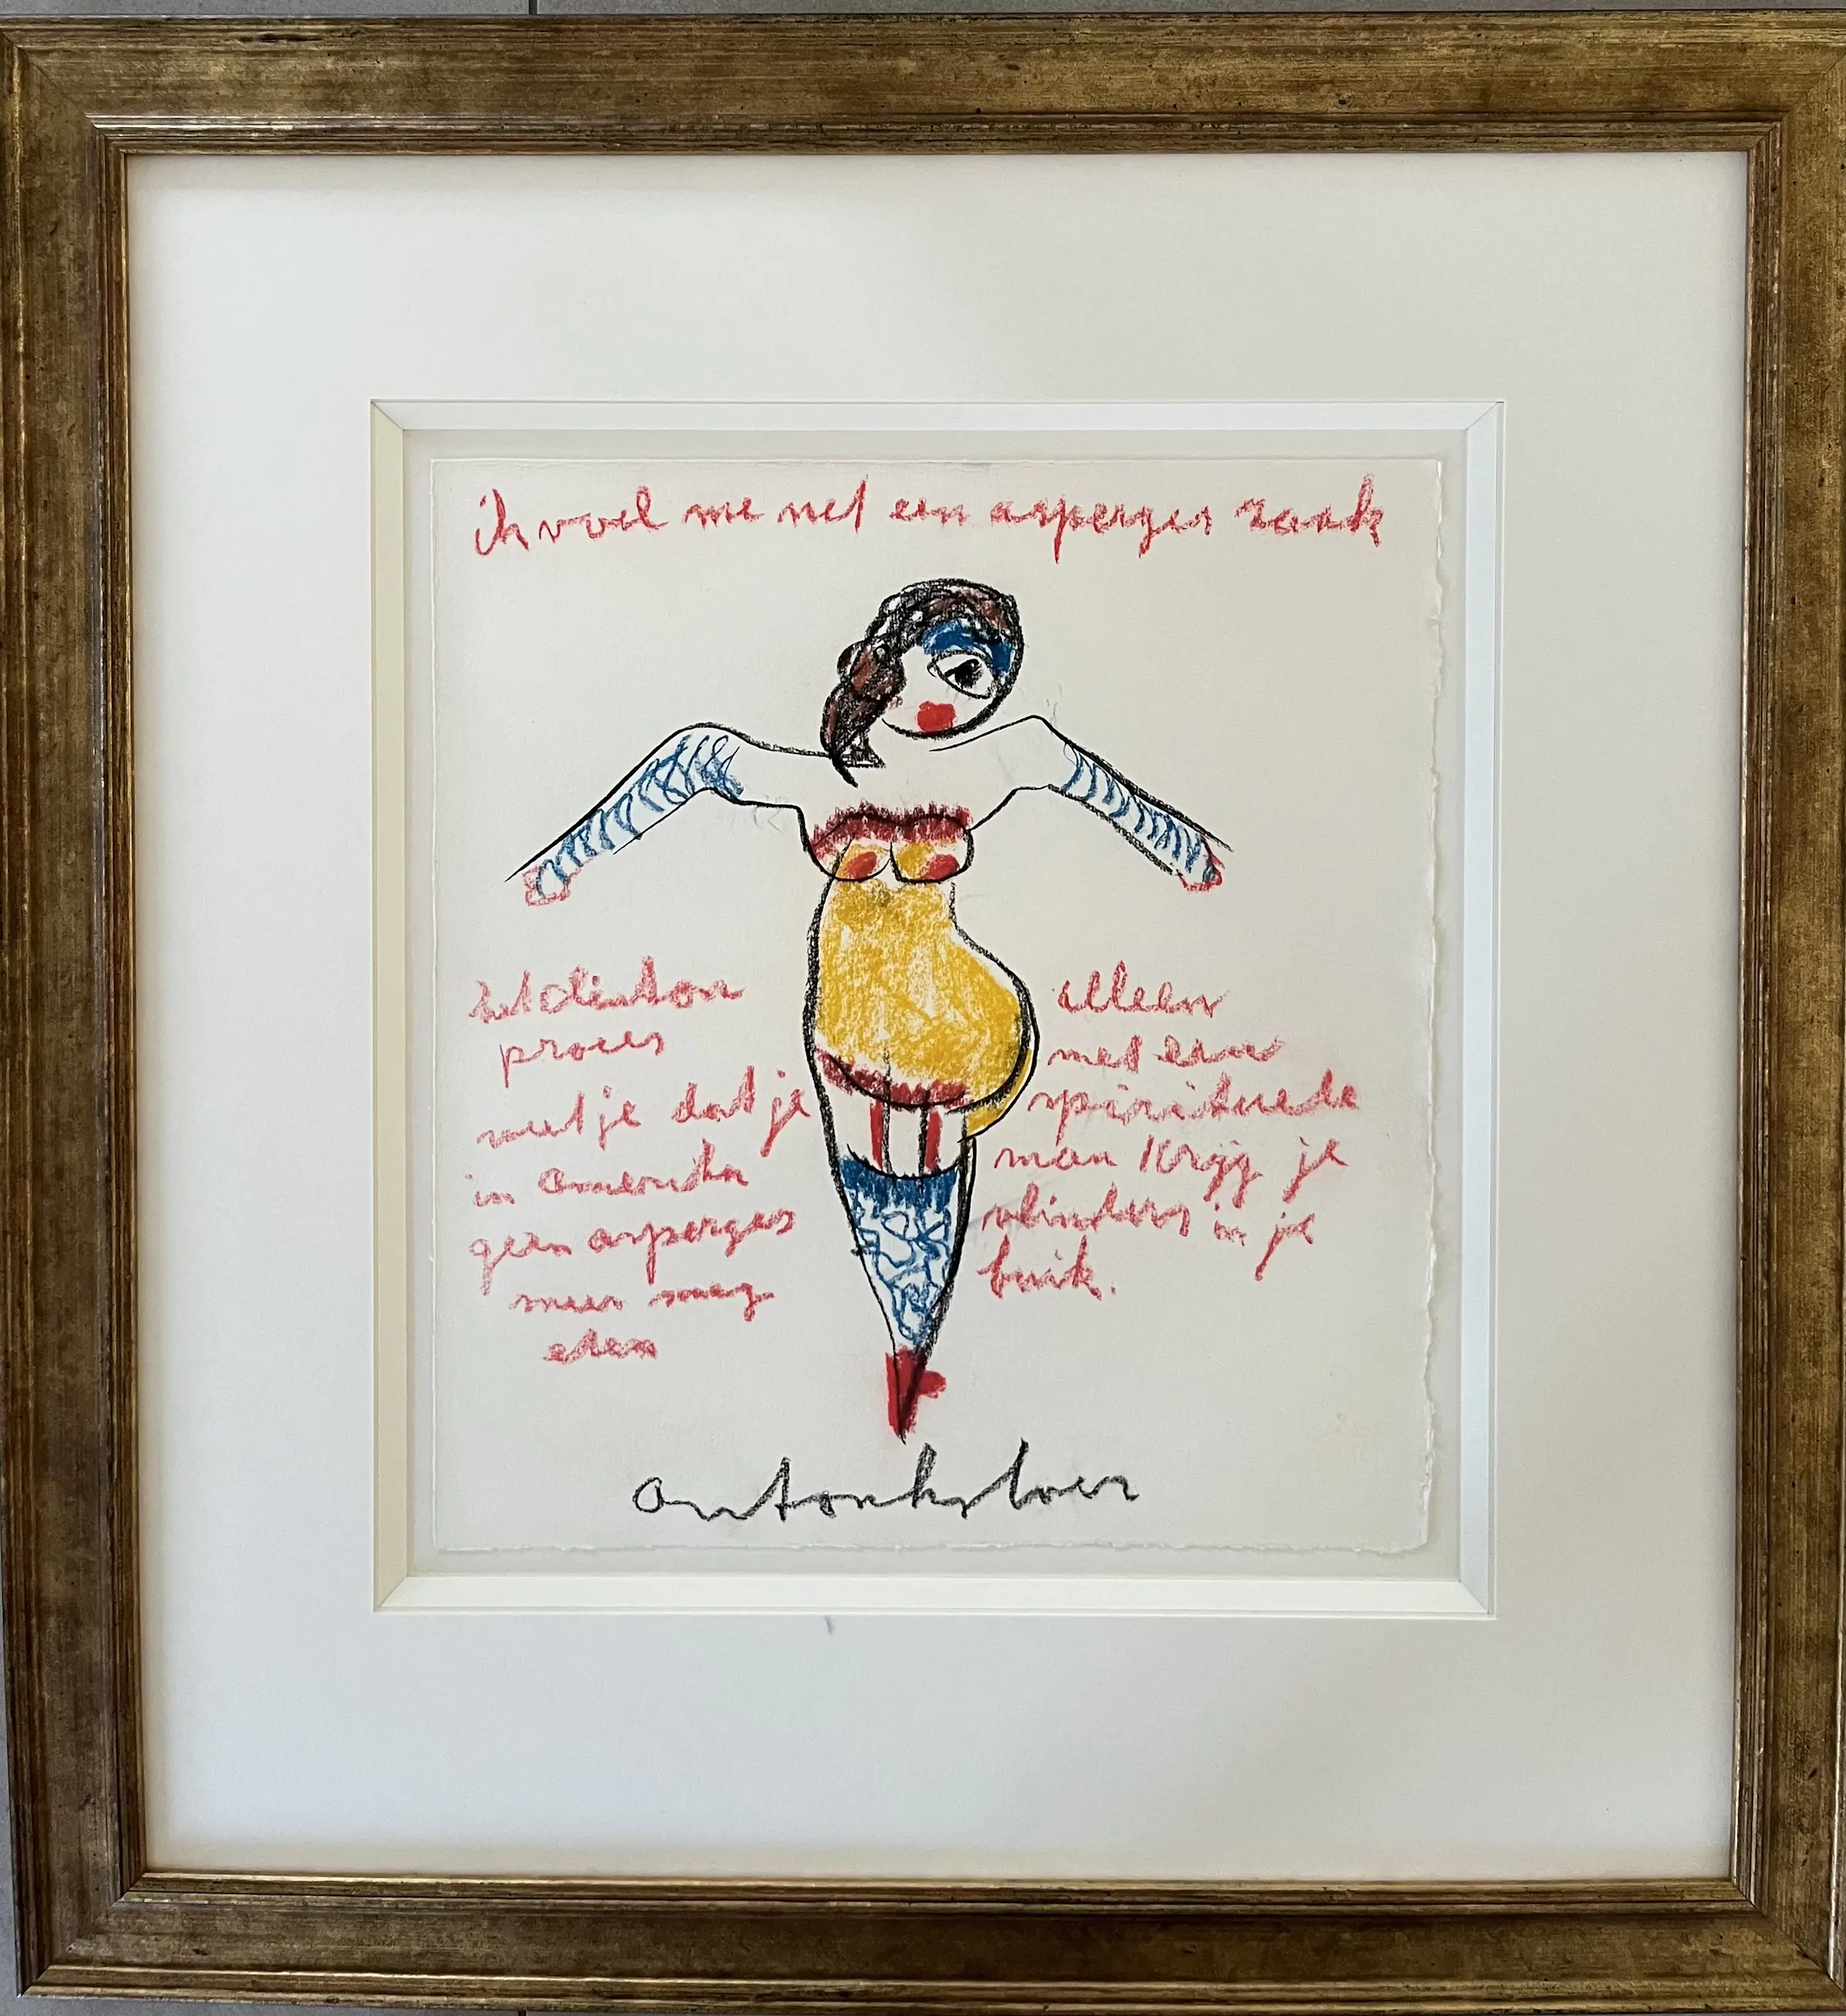 ik voel me net een asperges zaak
het clinton
proces
weet je dat je
in amerika
geen asperges
meer mag
eten
alleen
met een
spirituele
man krijg je
vlinders in je
buik.
anton heyboer